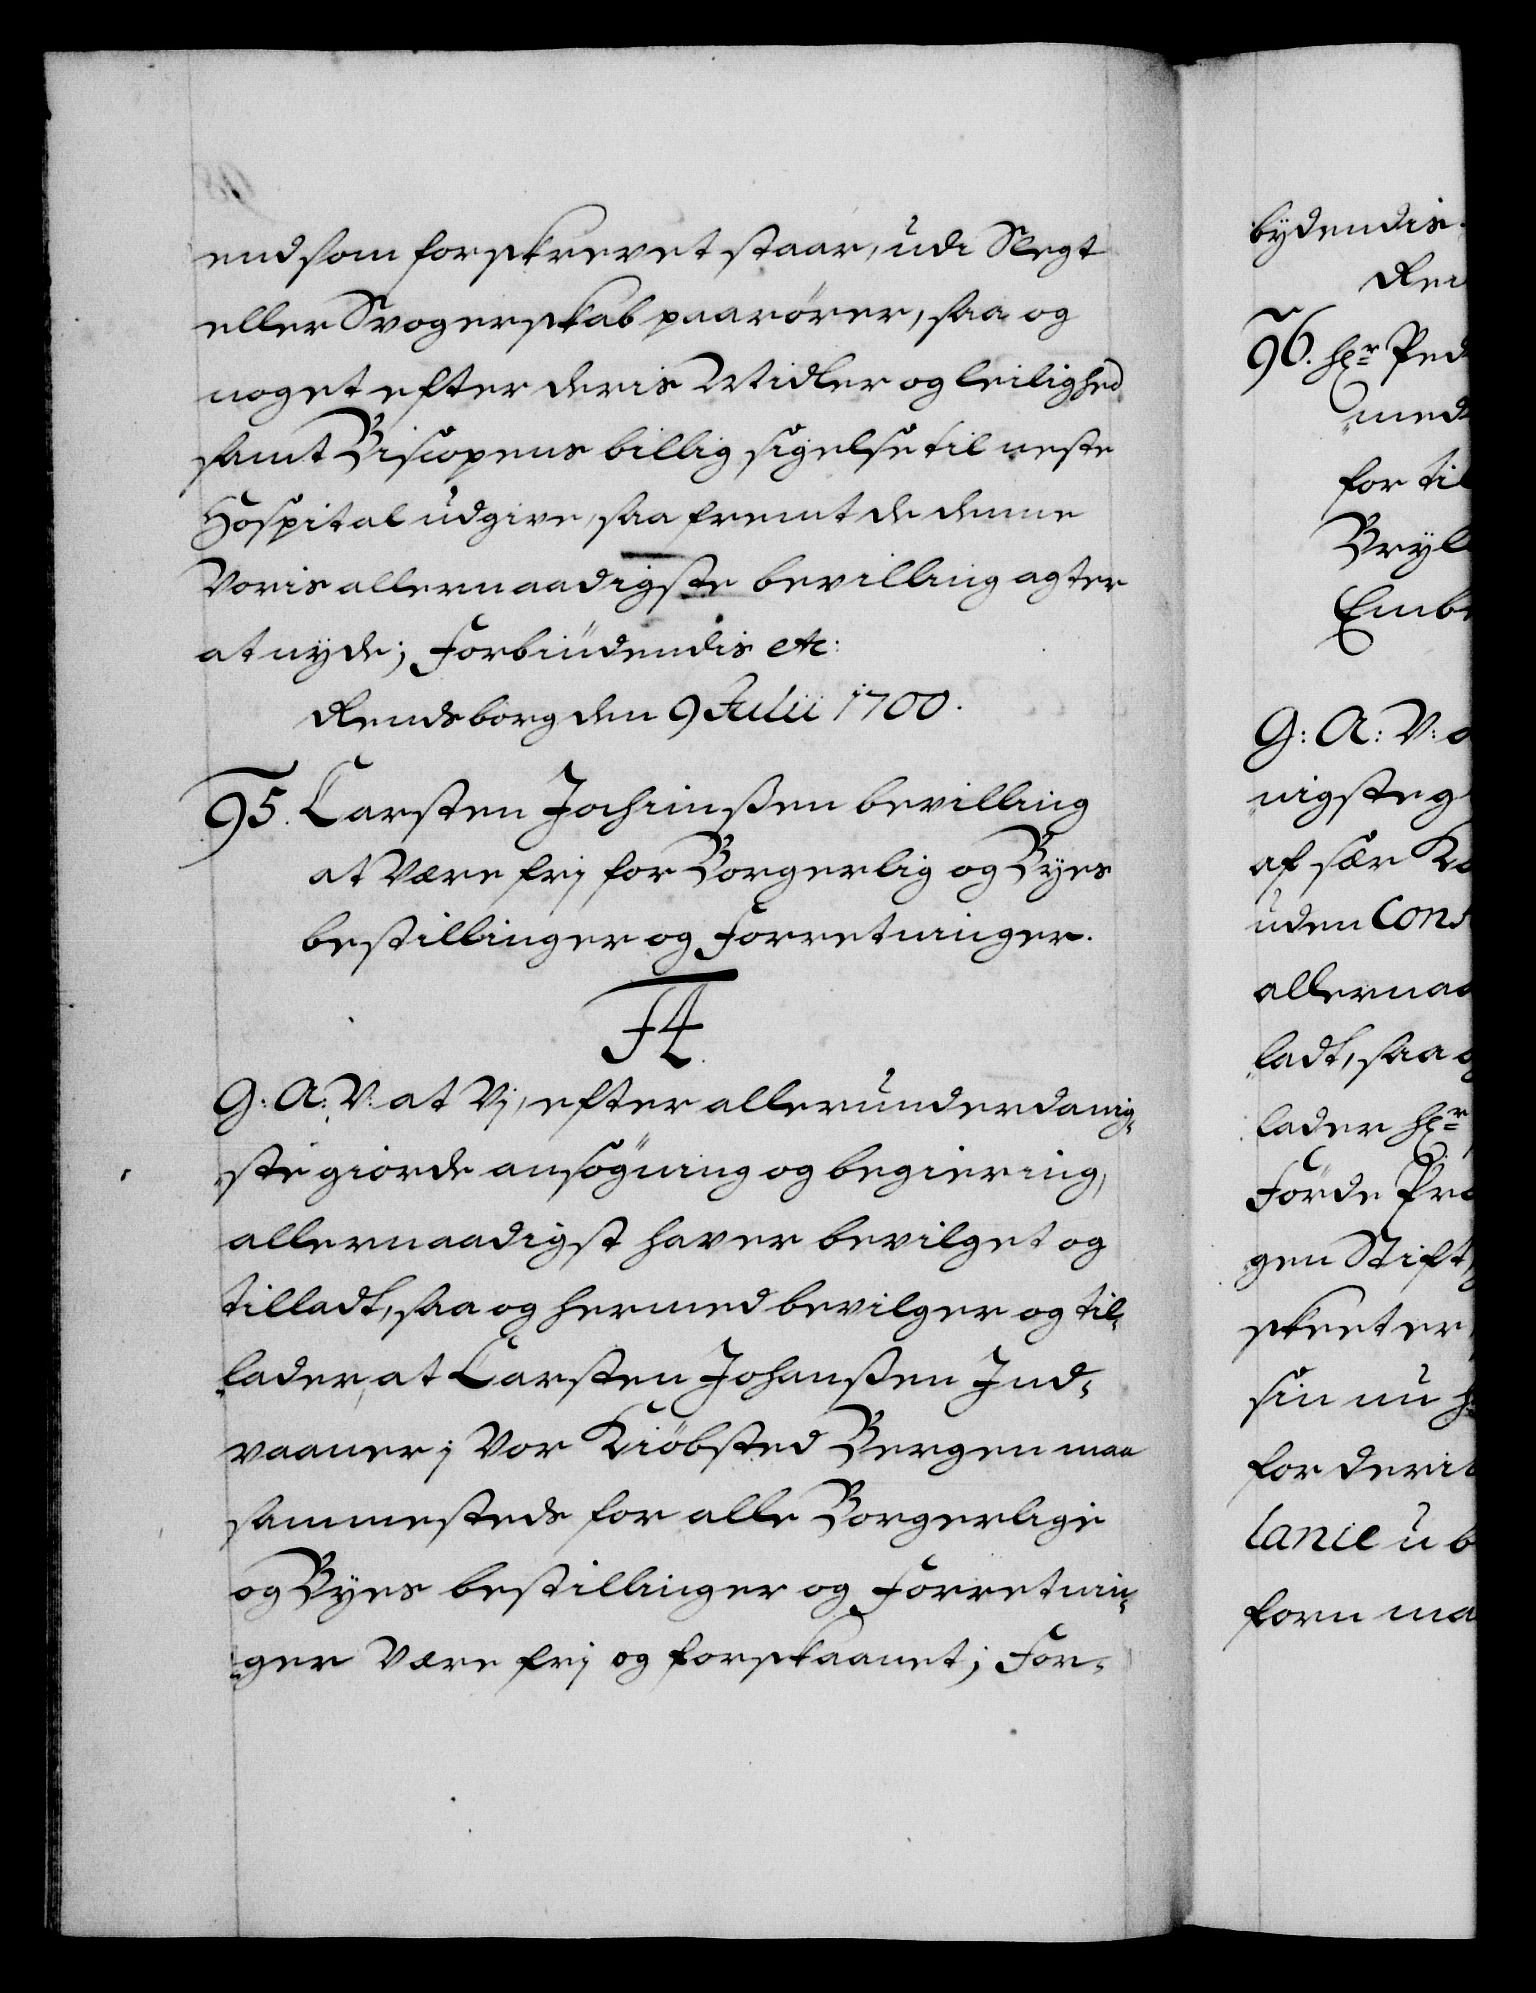 end som forskrevet staar, udi Slegt
eller Svogerskab paarörer, saa og
noget efter deris Midler og leilighed
samt Biscopens billig sigelse til neste
Hospital udgive, saa fremt de denne
Voris allernaadigste bevilling agter
at nyde; Forbiüdendis etc:
Rendsborg den 9 Julii 1700.
95. Carsten Jochimßen bevilling
at være frj for Borgerlig og Byes
bestillinger og Forretninger.
F4.
G: A: V: at Vj, efter allerunderdanig-
ste giorde ansögning og begiering,
allernaadigst haver bevilget og
tilladt, saa og hermed bevilger og til-
lader, at Carsten Johanßen Ind-
vaaner j Vor Kiöbsted Bergen maa
sammesteds for alle Borgerlige
og Byes bestillinger og Forretnin-
ger være frj og forskaanet; For-
bydendis.
Ren
96. Hr Ped
med
for til
Bryll
Emb
G: A: V: a
nigste g
af sær Ko
uden Cons
allernaa
ladt, saa og
lader Hr
Förde Pr
gen Stift,
skeet er,
sin nu
for deris
lanie ub
forn ma